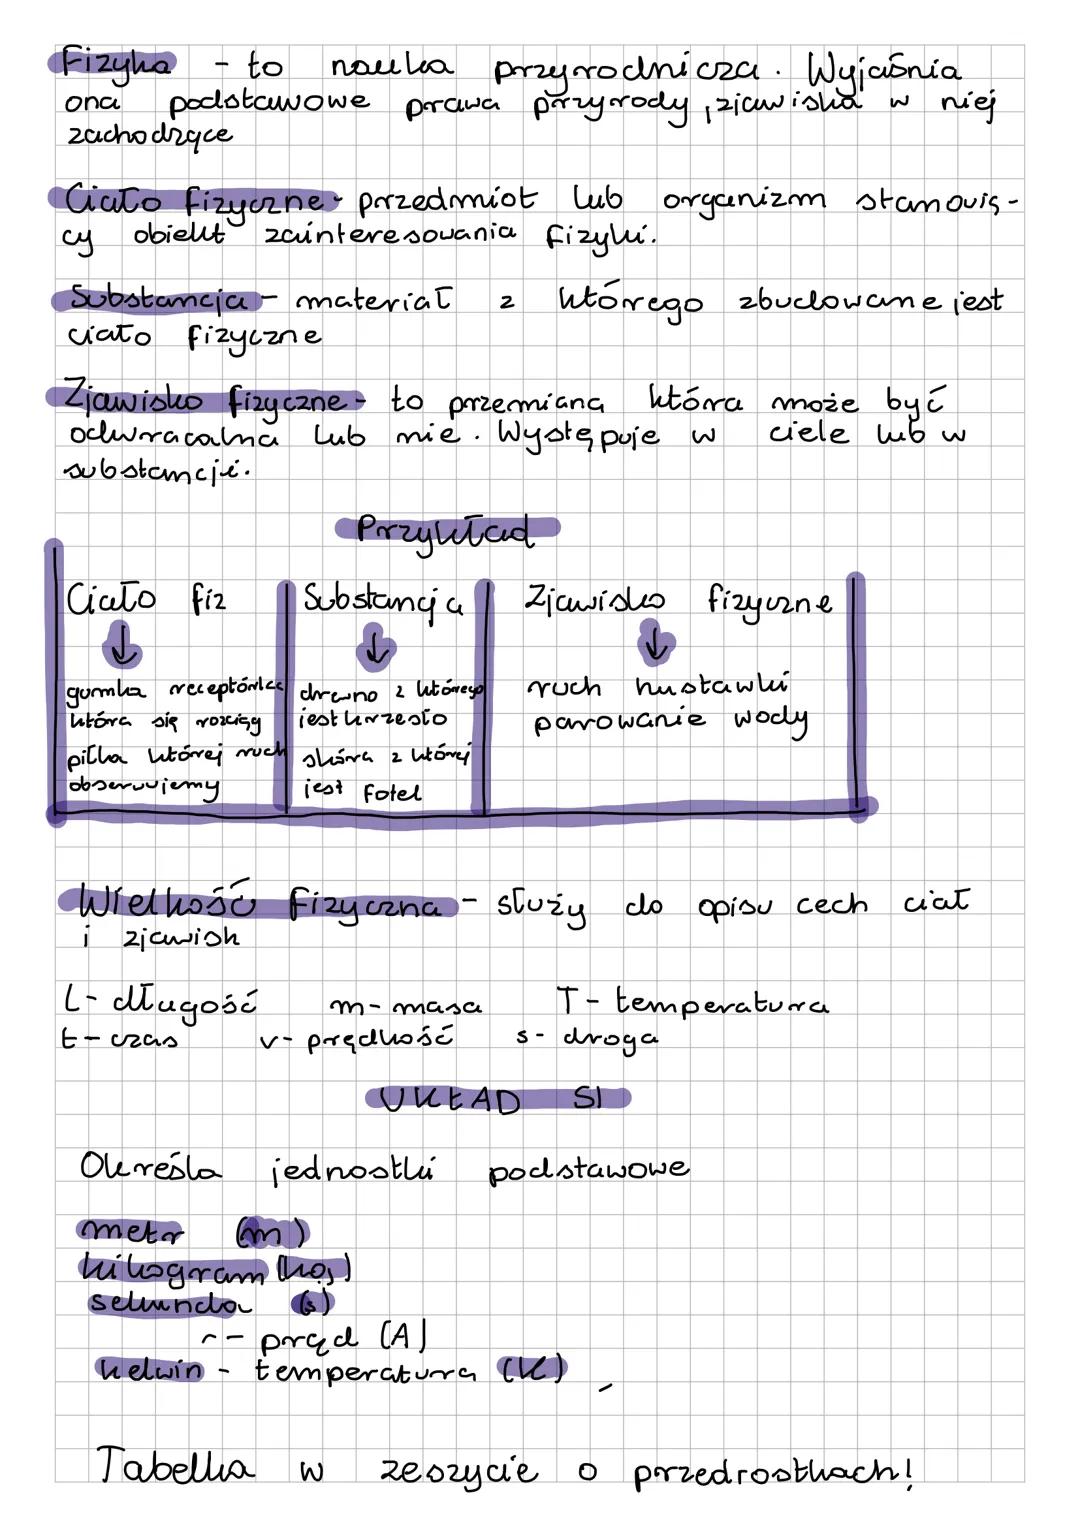 Fizyka - to nauka przyrodnicza. Wyjaśnia
ona podstawowe prawa przyrody, zjawiska w niej
zachodzące
Ciało fizyczne - przedmiot lub organizm stanowią-
cy obiekt zainteresowania fizyki.
Substancja - materiał z którego zbudowane jest
ciało fizyczne
Zjawisko fizyczne - to przemiana która może być
odwracalna lub nie. Występuje w ciele lub w
substancji.
Przykład
Ciało fiz
gumka receptórka
która się rozciąg
piłka której ruch
obserwujemy
Substancja
drewno z którego
jest krzesło
skóra z której
jest fotel
Zjawisko fizyczne
ruch huśtawki
parowanie wody
Wielkość fizyczna - służy do opisu cech ciał
i zjawisk
L - długość m - masa T - temperatura
t - czas v - prędkość s - droga
UKŁAD SI
Określa jednostki podstawowe
metr (m)
kilogram (kg)
sekunda (s)
-- prąd (A)
kelwin - temperatura (K)
Tabelka w zeszycie o przedrostkach!